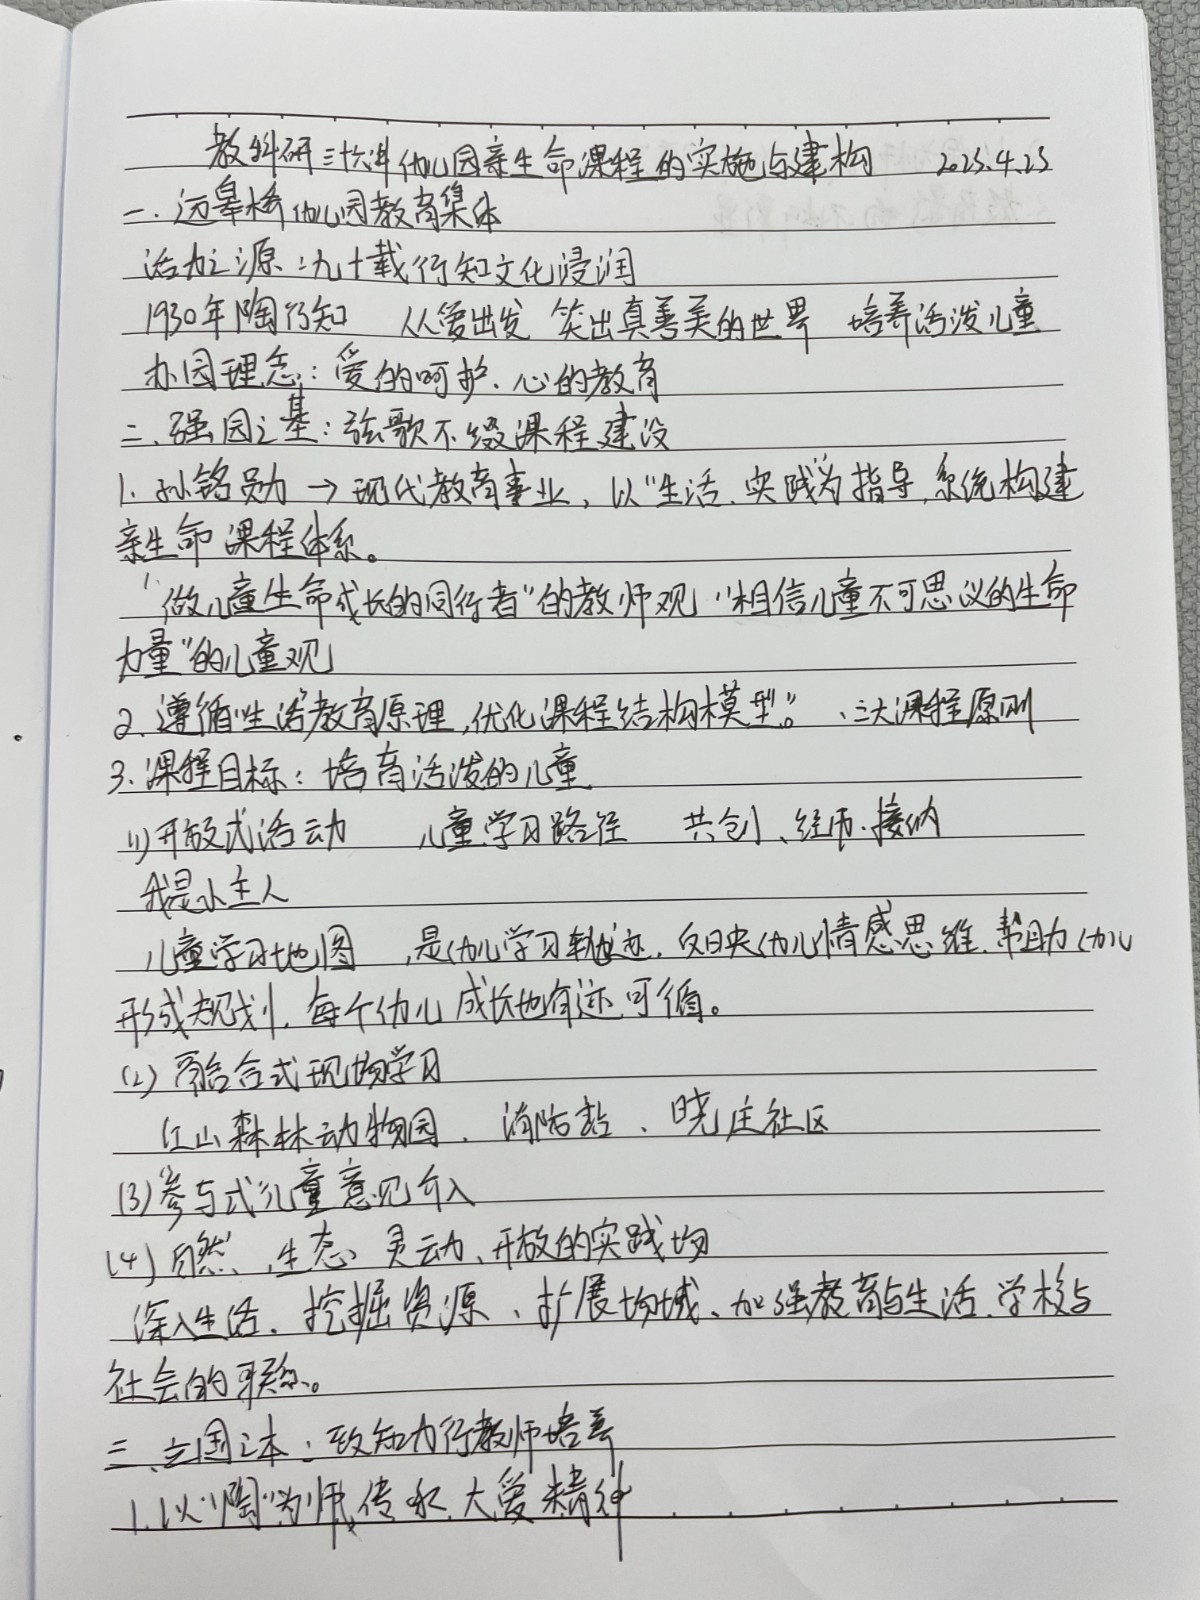 教科研三十六计 幼儿园亲生命课程的实施与建构 2025.4.25
一、迈皋桥幼儿园教育集体
活力之源：九十载行知文化浸润
1930年陶行知 从爱出发 笑出真善美的世界 培养活泼儿童
办园理念：爱的呵护、心的教育
二、强园之基：弦歌不缀课程建设
1. 孙铭勋→现代教育事业，以“生活、实践”为指导，系统构建
亲生命课程体系。
“做儿童生命成长的同行者”的教师观 “相信儿童不可思议的生命
力量”的儿童观
2. 遵循“生活”教育原理，优化课程结构模型。、三大课程原则
3. 课程目标：培育活泼的儿童
(1) 开放式活动 儿童学习路径 共创、经历、接纳
我是小主人
儿童学习地图，是幼儿学习轨迹，反映幼儿情感思维，帮助幼儿
形成规划，每个幼儿成长也有迹可循。
(2) 融合式现场学习
红山森林动物园、消防站、晓庄社区
(3)“参与式”儿童意见介入
(4) 自然、生态、灵动、开放的实践场
深入生活、挖掘资源、扩展场域、加强教育与生活、学校与
社会的联系。
三、立园之本：致知力行教师培养
1. 以“陶”为师，传承大爱精神